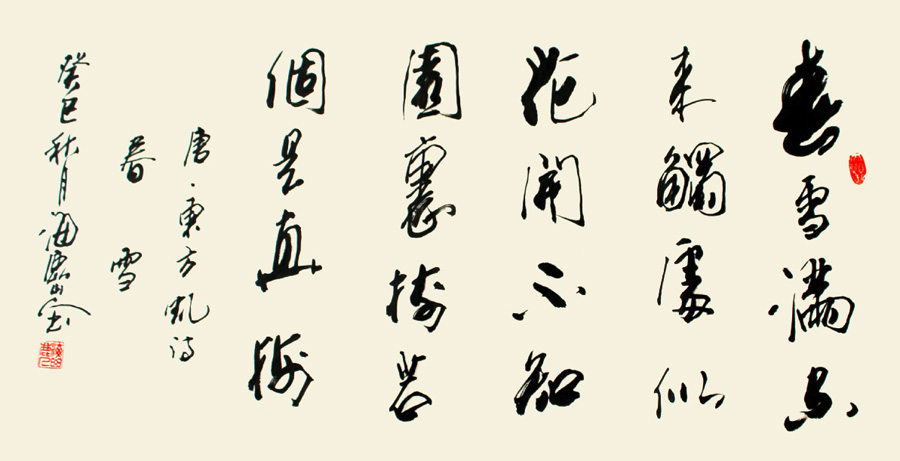 春雪滿空
来觸處似
花開不知
園裏樹若
個是真梅
唐·東方虬诗
春雪
癸巳秋月